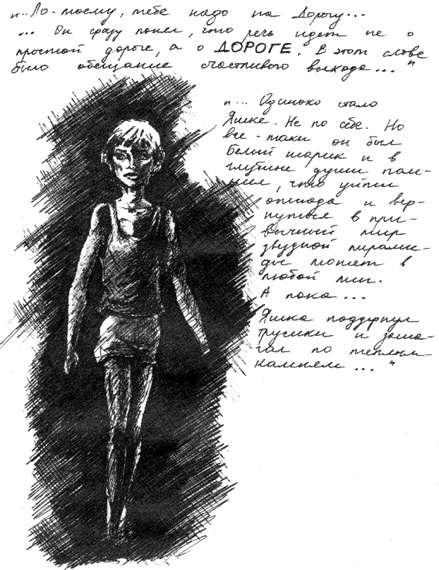 "... По-моему, тебе надо на Дорогу...
... Он сразу понял, что речь идет не о
простой дороге, а о ДОРОГЕ. В этом слове
было обещание счастливого выхода..."
"... Одиноко стало
Яшке. Не по себе. Но
все-таки он был
Белый шарик и в
глубине души пом-
нил, что уйти
отсюда и вер-
нуться в при-
вычный мир
звездной пирами-
ды может в
любой миг.
А пока...
Яшка поддернул
трусики и заша-
гал по теплым
камням..."